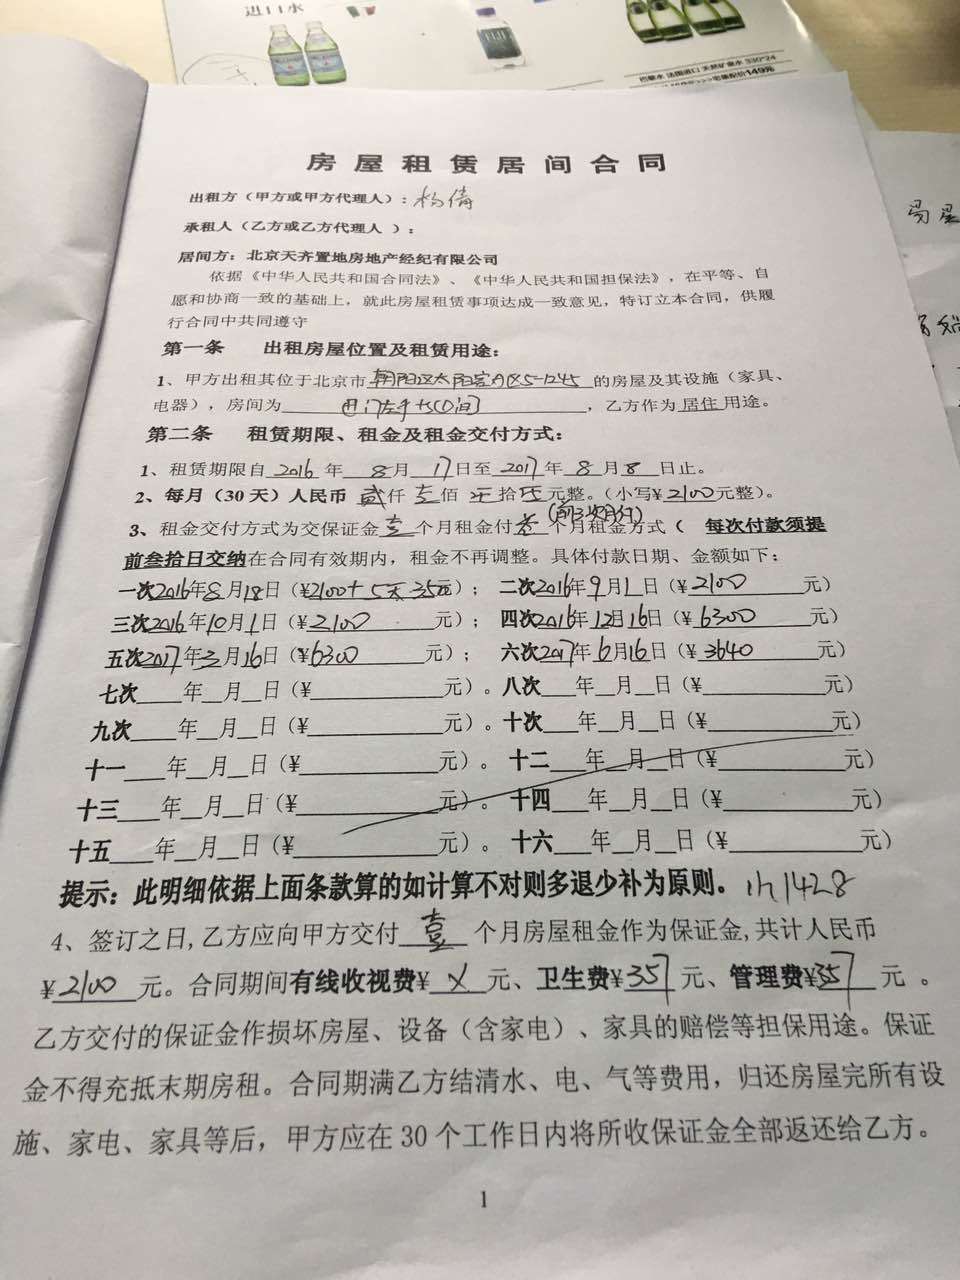 进口水
FIJI
巴黎水 法国进口 天然矿泉水 330*24
房屋租赁居间合同
出租方（甲方或甲方代理人）：杨倩
承租人（乙方或乙方代理人 ）：
居间方：北京天齐置地房地产经纪有限公司
依据《中华人民共和国合同法》、《中华人民共和国担保法》，在平等、自
愿和协商一致的基础上，就此房屋租赁事项达成一致意见，特订立本合同，供履
行合同中共同遵守
第一条 出租房屋位置及租赁用途：
1、甲方出租其位于北京市朝阳区太阳宫A区5-1245的房屋及其设施（家具、
电器），房间为进门左手 ，乙方作为居住用途。
第二条 租赁期限、租金及租金交付方式：
1、租赁期限自2016年8月17日至2017年8月8日止。
2、每月（30天）人民币 贰仟壹佰零拾零元整。（小写¥2100元整）。
3、租金交付方式为交保证金壹个月租金付叁个月租金方式（ 每次付款须提
前叁拾日交纳在合同有效期内，租金不再调整。具体付款日期、金额如下：
一次2016年8月18日（¥2100+5天35元）； 二次2016年9月1日（¥2100元）
三次2016年10月1日（¥2100元）； 四次2016年12月16日（¥6300元）
五次2017年3月16日（¥6300元）； 六次2017年6月16日（¥3640元）
七次____年__月__日（¥__________元）。八次___年__月__日（¥__________元）
九次____年__月__日（¥__________元）。十次___年__月__日（¥__________元）
十一___年__月__日（¥__________元）。十二___年__月__日（¥__________元）
十三___年__月__日（¥__________元）。十四___年__月__日（¥__________元）
十五___年__月__日（¥__________元）。十六___年__月__日（¥__________元）
提示：此明细依据上面条款算的如计算不对则多退少补为原则。 1428
4、签订之日,乙方应向甲方交付壹个月房屋租金作为保证金,共计人民币
¥2100元。合同期间有线收视费¥X元、卫生费¥357元、管理费¥357元 。
乙方交付的保证金作损坏房屋、设备（含家电）、家具的赔偿等担保用途。保证
金不得充抵末期房租。合同期满乙方结清水、电、气等费用，归还房屋完所有设
施、家电、家具等后，甲方应在30个工作日内将所收保证金全部返还给乙方。
1